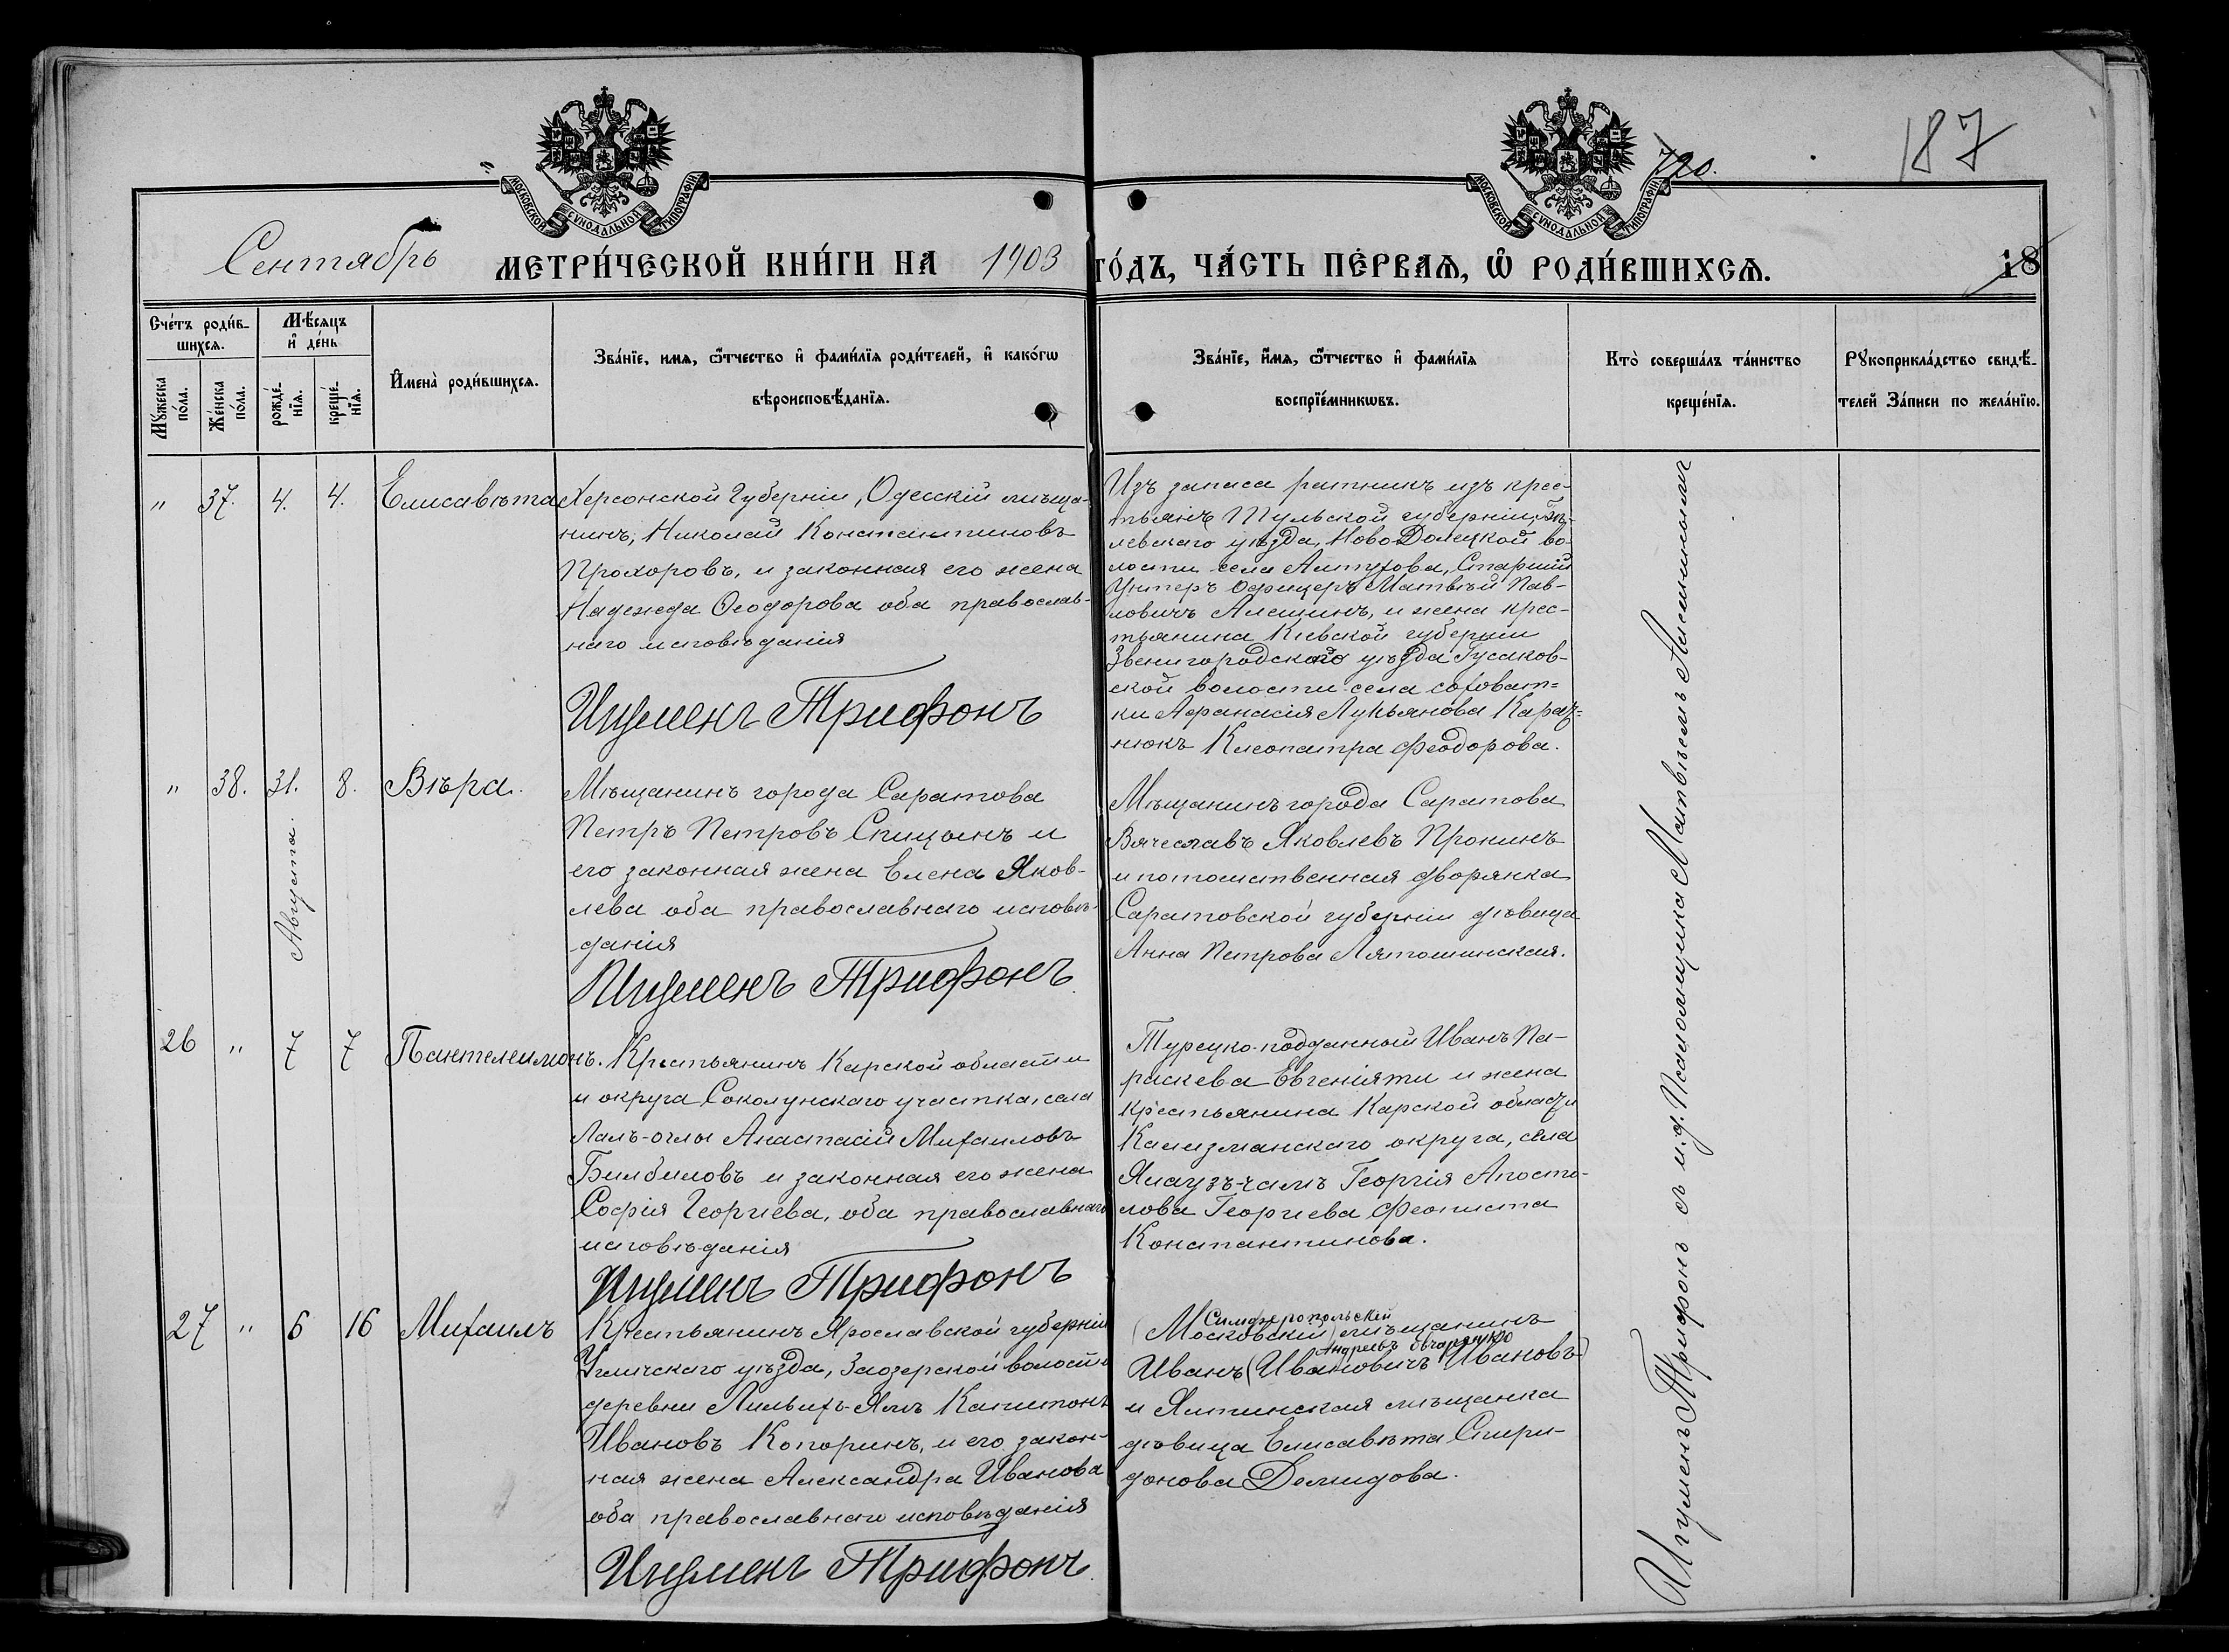 187
720.
МОСКОВСКОЙ СѴНОДАЛЬНОЙ ТИПОГРАФІИ
МОСКОВСКОЙ СѴНОДАЛЬНОЙ ТИПОГРАФІИ
Сентябрь МЕТРИ́ЧЕСКОЙ КНИ́ГИ НА 1903 ГО́ДЪ, ЧА́СТЬ ПЕ́РВАѦ, Ѡ҆ РОДИ́ВШИХСѦ. 18
Сче́тъ роди́в-
шихсѧ.
Мꙋ́жеска по́ла.
Же́нска по́ла.
Мѣ́сяцъ
и҆ де́нь
рожде́-
нїѧ.
креще́-
нїѧ.
И҆мена̀ роди́вшихсѧ.
Зва́нїе, имѧ, ѻ҆́тчество и҆ фами́лїѧ роди́телей, и҆ како́гѡ
вѣроисповѣ́данїѧ.
Зва́нїе, и҆́мѧ, ѻ҆́тчество и҆ фами́лїѧ
воспрїе́мникѡвъ.
Кто̀ соверша́лъ та́инство
креще́нїѧ.
Рꙋкоприкла́дство свидѣ́-
телей За́писи по жела́нїю.
" 37. 4. 4. Елисавѣта
Херсонской Губерніи, Одесскій мѣща-
нинъ, Николай Константиновъ
Прохоровъ, и законная его жена
Надежда Ѳеодорова оба православ-
наго исповѣданія
Игуменъ Трифонъ
Изъ запаса ратникъ изъ крес-
тьянъ Тульской губерніи, Бѣ-
левскаго уѣзда, Ново Долецкой во-
лости села Алтухова, Старшій
Унтеръ Офицеръ Матвѣй Пав-
ловичъ Алешинъ, и жена крес-
тьянина Кіевской губерніи
Звенигородскаго уѣзда Гусаков-
ской волости села
Аѳанасія Лукьянова
Клеопатра Феодорова.
" 38. 31. 8. Вѣра.
Августа.
Мѣщанинъ города Саратова
Петръ Петровъ Спицынъ и
его законная жена Елена Яков-
лева оба православнаго исповѣ-
данія
Игуменъ Трифонъ
Мѣщанинъ города Саратова
Вячеславъ Яковлевъ Пронинъ
и потомственная дворянка
Саратовской губерніи дѣвица
Анна Петрова Лятошинская.
26 " 7 7 Пантелеимонъ.
Крестьянинъ Карской области
и округа Соколунскаго участка, села
Лалъ-оглы Анастасій Михаиловъ
Билбиловъ и законная его жена
Софія Георгіева, оба православнаго
исповѣданія
Игуменъ Трифонъ
Турецко-подданный Иванъ Па-
раскева Евгеніяти и жена
крестьянина Карской области
Кагизманскаго округа, села
Ялаузъ-чамъ Георгія Апосто-
лова Георгіева Феописта
Константинова.
27 " 6 16 Михаилъ
Крестьянинъ Ярославской губерніи
Угличскаго уѣзда, Заозерской волости
деревни Капитонъ
Ивановъ Копоринъ, и его закон-
ная жена Александра Иванова
оба православнаго исповѣданія
Игуменъ Трифонъ
Симферопольскій
(Московскій) мѣщанинъ
Андреевъ Овчаренко
Иванъ (Ивановичъ Ивановъ)
и Ялтинская мѣщанка
дѣвица Елисавета Спири-
донова Демидова.
Игуменъ Трифонъ съ и.д. Псаломщика Матвѣемъ